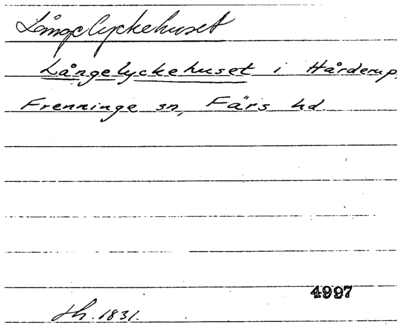 Långelyckehuset
Långelyckehuset i Hårderup,
Frenninge sn, Färs hd
4997
th. 1831.